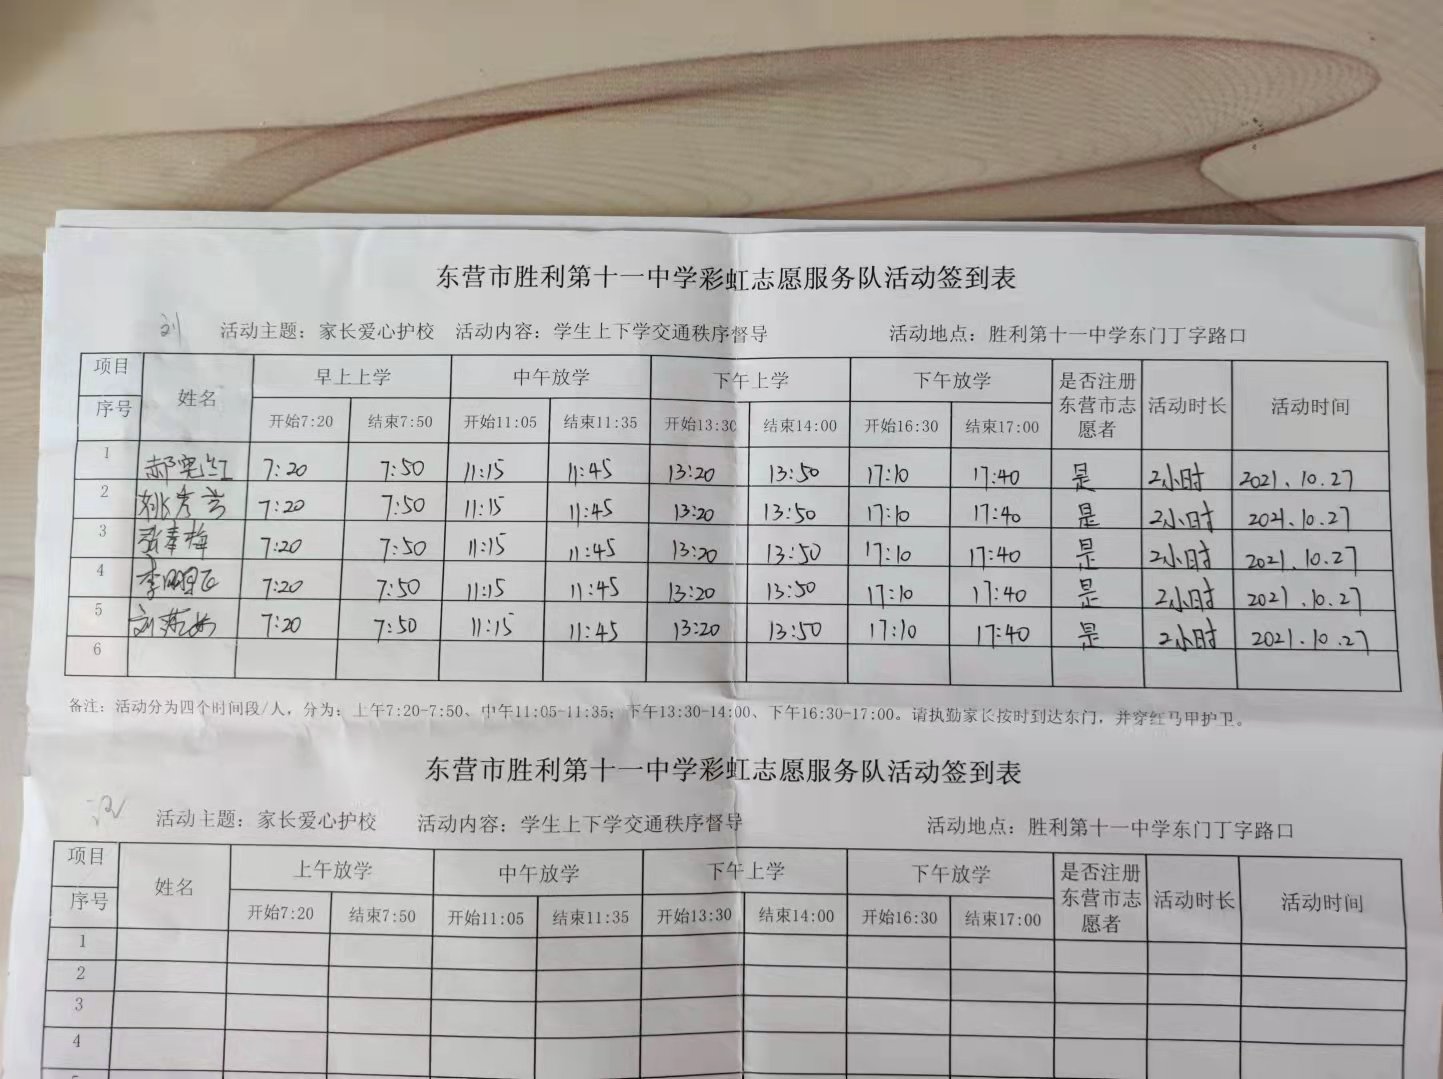 东营市胜利第十一中学彩虹志愿服务队活动签到表
刘 活动主题：家长爱心护校 活动内容：学生上下学交通秩序督导 活动地点：胜利第十一中学东门丁字路口
项目 姓名 早上上学 中午放学 下午上学 下午放学 是否注册东营市志愿者 活动时长 活动时间
序号 开始7:20 结束7:50 开始11:05 结束11:35 开始13:30 结束14:00 开始16:30 结束17:00
1 7:20 7:50 11:15 11:45 13:20 13:50 17:10 17:40 是 2小时 2021.10.27
2 7:20 7:50 11:15 11:45 13:20 13:50 17:10 17:40 是 2小时 2021.10.27
3 7:20 7:50 11:15 11:45 13:20 13:50 17:10 17:40 是 2小时 2021.10.27
4 7:20 7:50 11:15 11:45 13:20 13:50 17:10 17:40 是 2小时 2021.10.27
5 7:20 7:50 11:15 11:45 13:20 13:50 17:10 17:40 是 2小时 2021.10.27
6
备注：活动分为四个时间段/人，分为：上午7:20-7:50、中午11:05-11:35；下午13:30-14:00、下午16:30-17:00。请执勤家长按时到达东门，并穿红马甲护卫。
东营市胜利第十一中学彩虹志愿服务队活动签到表
活动主题：家长爱心护校 活动内容：学生上下学交通秩序督导 活动地点：胜利第十一中学东门丁字路口
项目 姓名 上午放学 中午放学 下午上学 下午放学 是否注册东营市志愿者 活动时长 活动时间
序号 开始7:20 结束7:50 开始11:05 结束11:35 开始13:30 结束14:00 开始16:30 结束17:00
1
2
3
4